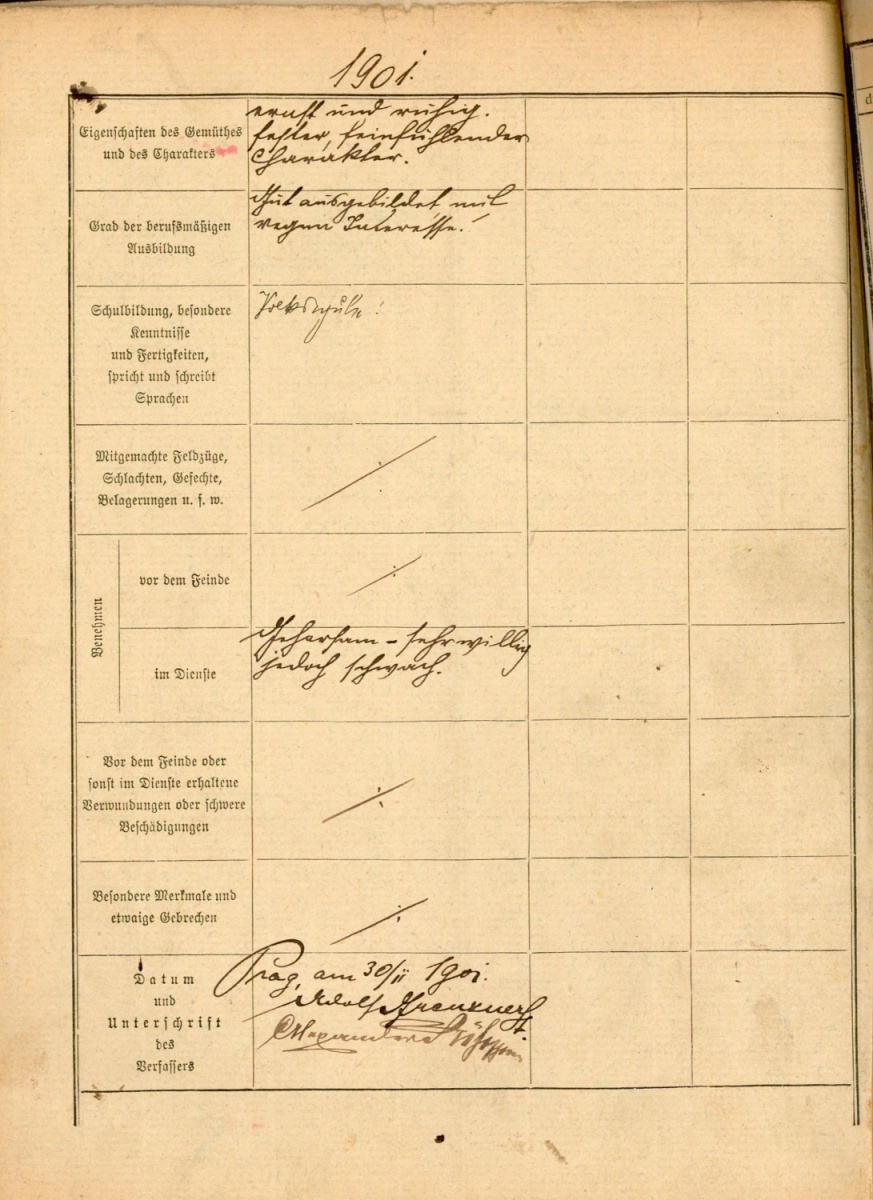 1901.
Eigenschaften des Gemüthes
und des Charakters
ernst und ruhig.
fester, feinfühlender
Charakter.
Grad der berufsmäßigen
Ausbildung
Gut ausgebildet mit
regem Interesse!
Schulbildung, besondere
Kenntnisse
und Fertigkeiten,
spricht und schreibt
Sprachen
Volksschule!
Mitgemachte Feldzüge,
Schlachten, Gefechte,
Belagerungen u. s. w.
Benehmen
vor dem Feinde
im Dienste
Gehorsam – sehr willig
jedoch schwach.
Vor dem Feinde oder
sonst im Dienste erhaltene
Verwundungen oder schwere
Beschädigungen
Besondere Merkmale und
etwaige Gebrechen
Datum
und
Unterschrift
des
Verfassers
Prag, am 30/11 1901.
Adolf
Alexander
d